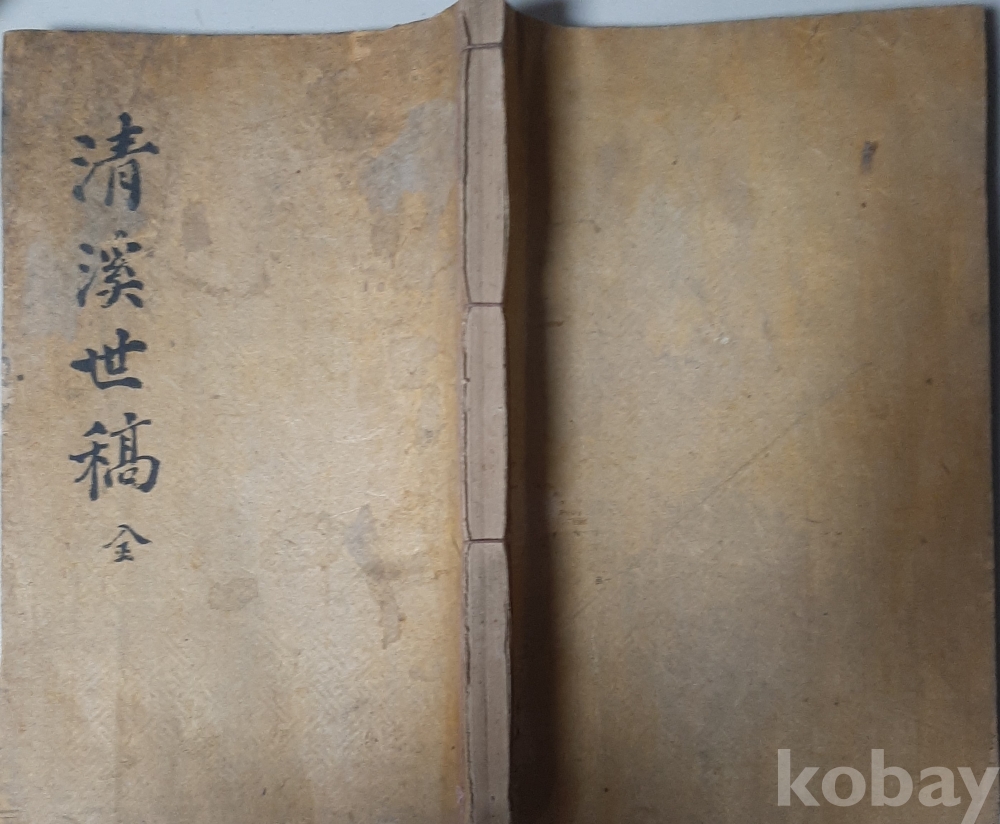 清溪世稿 全
kobay